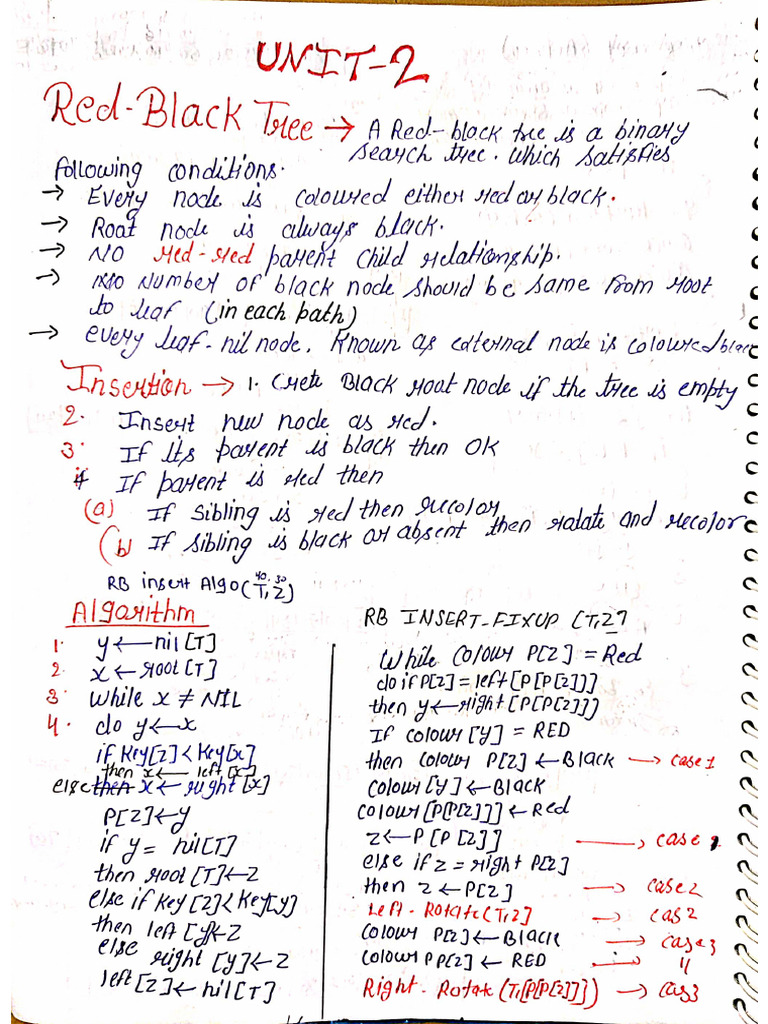 UNIT-2
Red-Black Tree → A Red-black tree is a binary
search tree. Which satisfies
following conditions.
→ Every node is coloured either red or black.
→ Root node is always black.
→ NO red-red parent child relationship.
→ Number of black node should be same from root
to leaf (in each path)
→ every leaf-nil node. Known as external node is coloured black
Insertion → 1. Crete Black root node if the tree is empty
2. Insert new node as red.
3. If its parent is black then OK
4 If parent is red then
(a) If sibling is red then recolor
(b) If sibling is black or absent then rotate and recolor
40, 30
RB insert Algo(T, Z)
Algorithm
1. y ← nil[T]
2. x ← root[T]
3. while x ≠ NIL
4. do y ← x
if Key[z] < Key[x]
then x ← left [x]
else then x ← right [x]
P[Z] ← y
if y = nil[T]
then root [T] ← z
else if Key [z] < Key[y]
then left [y] ← z
else right [y] ← z
left [z] ← nil[T]
RB INSERT-FIXUP [T,Z]
While Colour P[z] = Red
do if P[z] = left[P[P[z]]]
then y ← right [P[P[z]]]
If colour [y] = RED
then colour P[z] ← Black → case 1
colour [y] ← Black
colour [P[P[z]]] ← Red
z ← P[P[z]] → case 1
else if z = right P[z]
then z ← P[z] → case 2
Left-Rotate(T,z] → cas 2
Colour P[z] ← Black → case 3
colour P P[z] ← RED → "
Right-Rotate (T,[P[P[z]]]) → cas 3